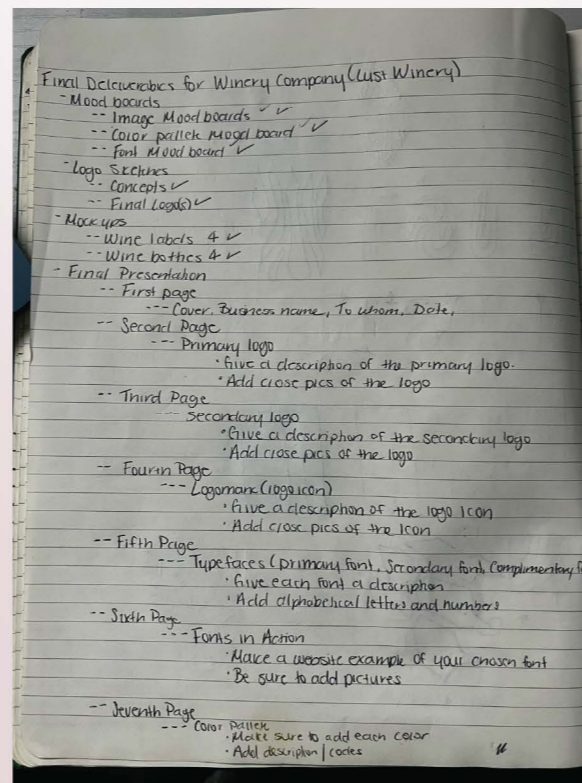 Final Deleiverabies for Winery Company (Lust Winery)
- Mood boards
-- Image Mood boards ✓ ✓
-- Color pallek Mood board ✓ ✓
-- Font Mood board ✓
- Logo Sketches
-- Concepts ✓
-- Final Logo(s) ✓
- Mockups
-- Wine labels 4 ✓
-- Wine bottles 4 ✓
- Final Presentation
-- First page
--- Cover, Business name, To whom, Date,
-- Second Page
--- Primary logo
• Give a description of the primary logo.
• Add close pics of the logo
-- Third Page
--- secondary logo
• Give a description of the secondary logo
• Add close pics of the logo
-- Fourth Page
--- Logomark (logo icon)
• Give a description of the logo Icon
• Add close pics of the Icon
-- Fifth Page
--- Typefaces (primary font, Secondary font, Complimentary f
• Give each font a description
• Add alphabetical letters and numbers
-- Sixth Page
--- Fonts in Action
• Make a website example of your chosen font
• Be sure to add pictures
-- Seventh Page
--- Color Pallek
• Make sure to add each color
• Add description / codes